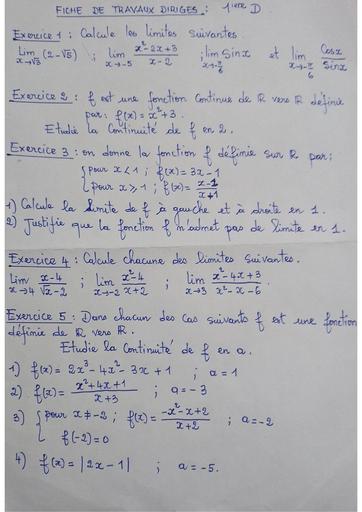 FICHE DE TRAVAUX DIRIGES : 1ière D
Exercice 1 : Calcule les limites suivantes.
lim x→√3 (2-√5) ; lim x→-5 (x²-2x+3)/(x-2) ; lim x→π/6 Sinx et lim x→-π/6 Cosx/Sinx
Exercice 2 : f est une fonction continue de R vers R définie
par : f(x) = x²+3.
Etudie la Continuité de f en 2.
Exercice 3 : on donne la fonction f définie sur R par :
{ pour x<1 ; f(x) = 3x-1
pour x⩾1 ; f(x) = (x-1)/(x+1)
1) Calcule la limite de f à gauche et à droite en 1.
2) Justifie que la fonction f n'admet pas de limite en 1.
Exercice 4 : Calcule chacune des limites suivantes.
lim x→4 (x-4)/(√x-2) ; lim x→-2 (x²-4)/(x+2) ; lim x→3 (x²-4x+3)/(x²-x-6)
Exercice 5 : Dans chacun des cas suivants f est une fonction
définie de R vers R.
Etudie la Continuité de f en a.
1) f(x) = 2x³-4x²-3x+1 ; a=1
2) f(x) = (x²+4x+1)/(x+3) ; a=-3
3) { pour x≠-2 ; f(x) = (-x²-x+2)/(x+2) ; a=-2
f(-2)=0
4) f(x) = |2x-1| ; a=-5.